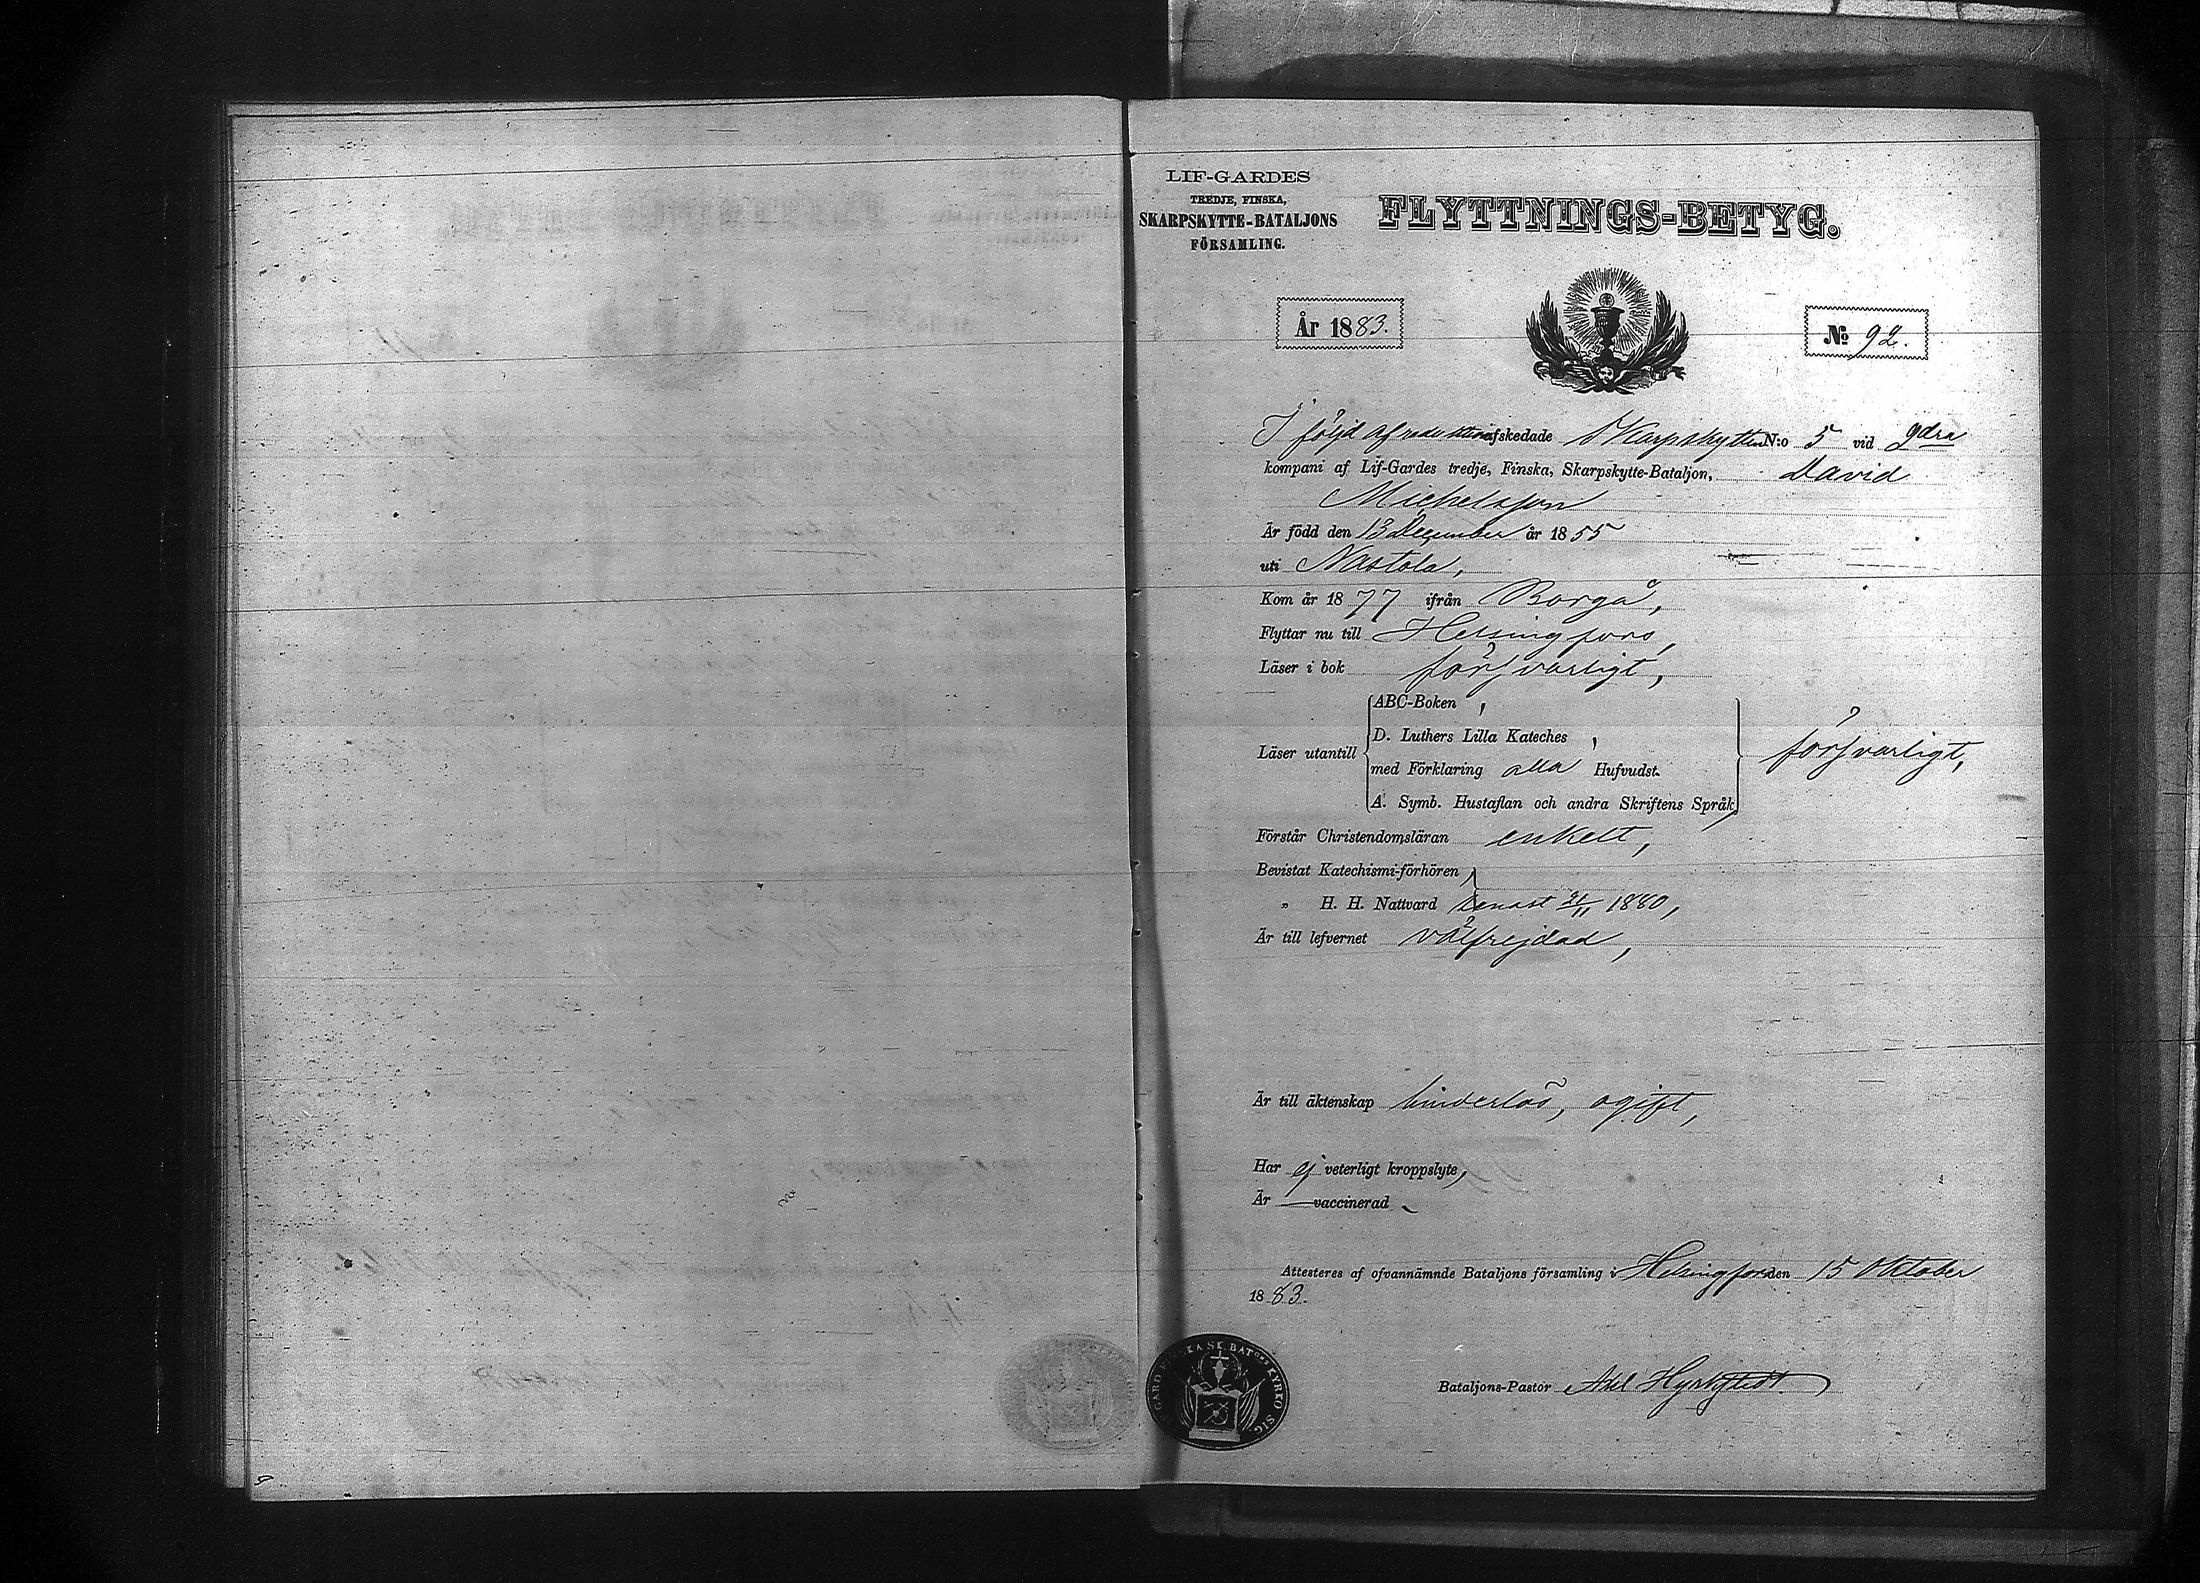 LIF-GARDES
TREDJE, FINSKA,
SKARPSKYTTE-BATALJONS
FÖRSAMLING.
FLYTTNINGS-BETYG.
År 1883.
№ 92.
I följd af afskedade Skarpskytten N:o 5 vid 2dra
kompani af Lif-Gardes tredje, Finska, Skarpskytte-Bataljon, David
Michelsson
Är född den 13 December år 1855
uti Nastola,
Kom år 1877 ifrån Borgå,
Flyttar nu till Helsingfors,
Läser i bok försvarligt,
Läser utantill
ABC-Boken,
D. Luthers Lilla Kateches,
med Förklaring alla Hufvudst.
A. Symb. Hustaflan och andra Skriftens Språk,
försvarligt,
Förstår Christendomsläran enkelt,
Bevistat Katechismi-förhören,
" H. H. Nattvard senast 21/11 1880,
Är till lefvernet välfrejdad,
Är till äktenskap hinderlös, ogift,
Har ej veterligt kroppslyte,
Är — vaccinerad
Attesteres af ofvannämnde Bataljons församling i Helsingfors den 15 Oktober
1883.
Bataljons-Pastor Axel Hyrkstedt.